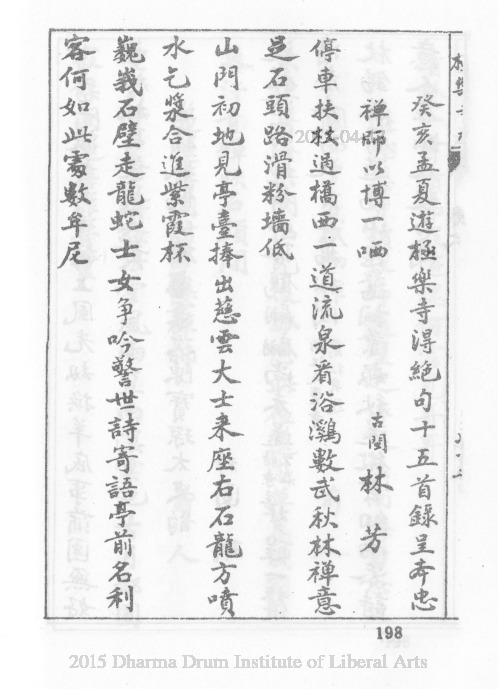 癸亥孟夏遊極樂寺得絕句十五首錄呈本忠
禪師以博一哂
古閩 林芳
停車扶杖過橋西一道流泉看浴鸂數武秋林禪意
足石頭路滑粉墻低
山門初地見亭臺捧出慈雲大士來座右石龍方噴
水乞漿合進紫霞杯
巍峩石壁走龍蛇士女爭吟警世詩寄語亭前名利
客何如此處數牟尼
198
2015 Dharma Drum Institute of Liberal Arts